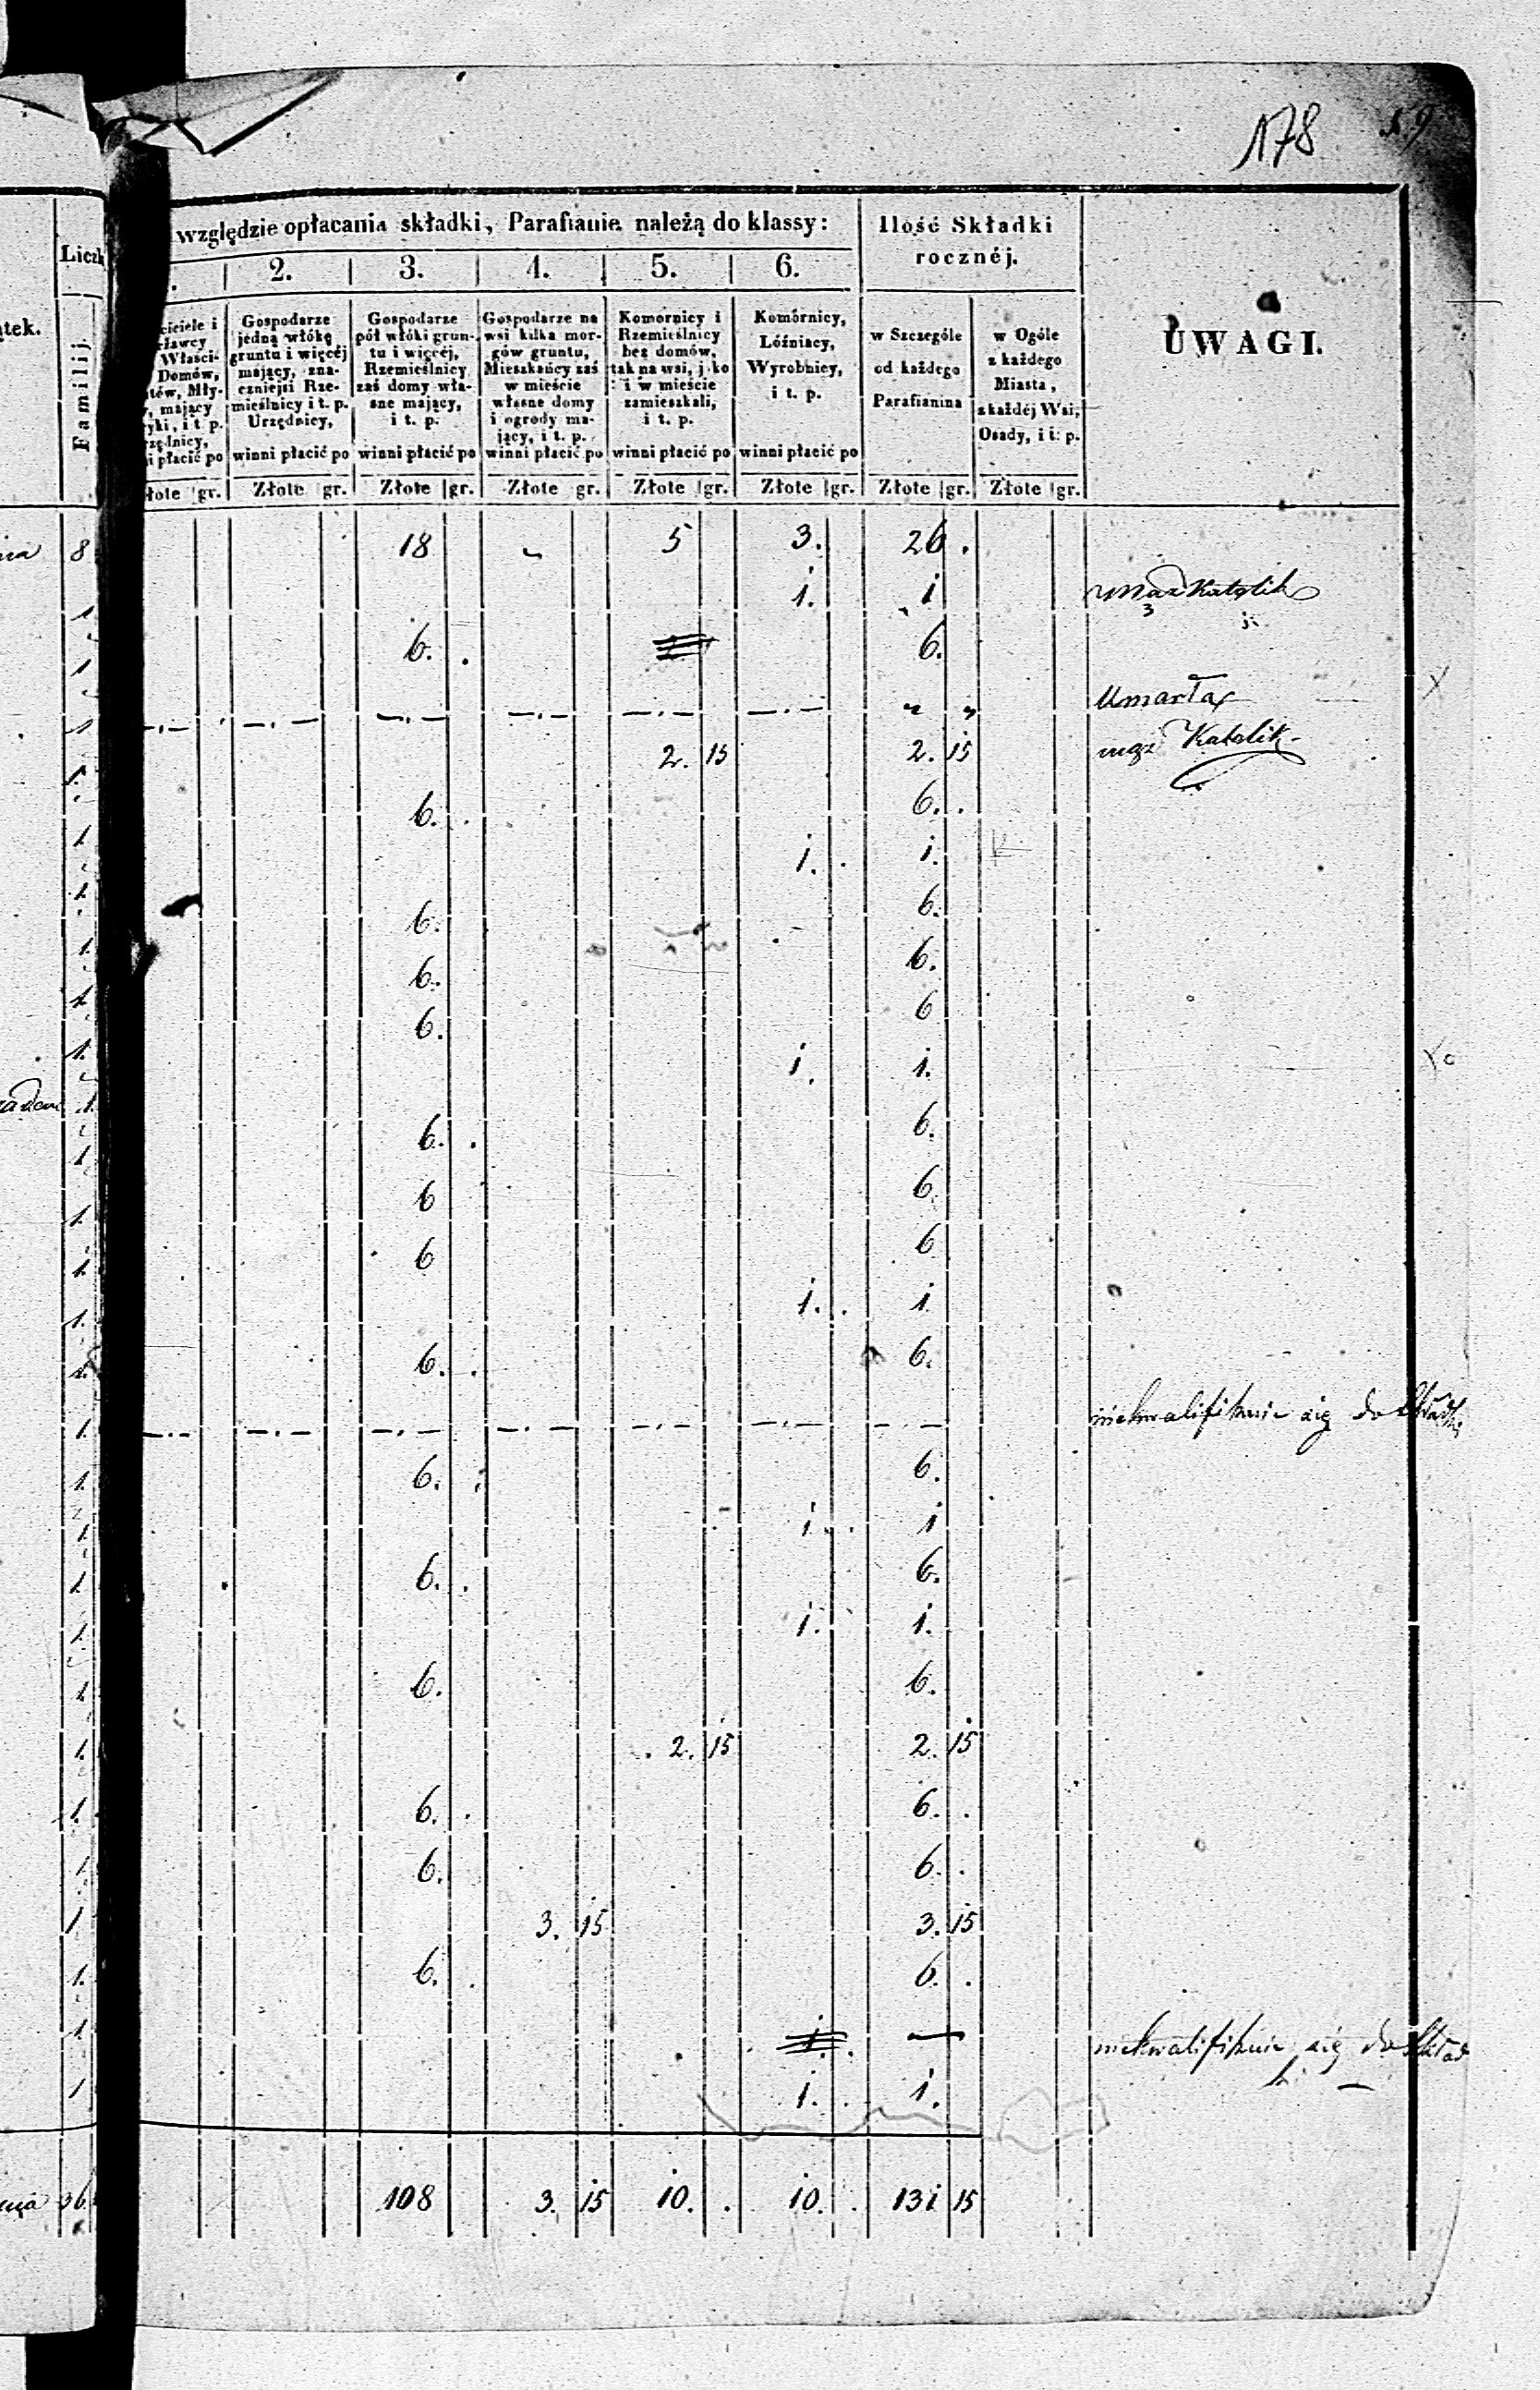 178
względzie opłacania składki, Parafianie należą do klassy:
Ilość Składki
rocznéj.
UWAGI.
2. 3. 4. 5. 6.
Familij
Gospodarze
jedną włókę
gruntu i więcéj
mający, zna-
czniejsi Rze-
mieślnicy i t. p.
Urzędnicy,
winni płacić po
Gospodarze
pół włóki grun-
tu i więcéj,
Rzemieślnicy
zaś domy wła-
sne mający,
i t. p.
winni płacić po
Gospodarze na
wsi kilka mor-
gów gruntu,
Mieszkańcy zaś
w mieście
własne domy
i ogrody ma-
jący, i t. p.
winni płacić po
Komornicy i
Rzemieślnicy
bez domów,
tak na wsi, jako
i w mieście
zamieszkali,
i t. p.
winni płacić po
Komórnicy,
Lóźniacy,
Wyrobnicy,
i t. p.
winni płacić po
w Szczególe
od każdego
Parafianina
w Ogóle
z każdego
Miasta,
z każdéj Wsi,
Osady, i t. p.
gr. Złote gr. Złote gr. Złote gr. Złote gr. Złote gr. Złote gr. Złote gr.
8 18 5 3. 26.
1 1. 1 mąż Katolik
1 6. 6.
1 Umarła
1. 2. 15 2. 15 mąż Katolik
1 6. 6.
1. 1. 1.
1. 6. 6.
1. 6. 6.
1. 6. 6
1. 1. 1.
1. 6. 6.
1. 6 6.
1. 6 6
1. 1. 1
1. 6. 6.
1. niekwalifikuie się do składki
1. 6. 6.
1. 1. 1
1. 6. 6.
1. 1. 1.
1. 6. 6.
1. 2. 15 2. 15
1. 6. 6.
1. 6. 6.
1 3. 15 3. 15
1. 6. 6.
1 niekwalifikuie się do skład
1 1. 1.
108 3. 15 10. 10. 131 15